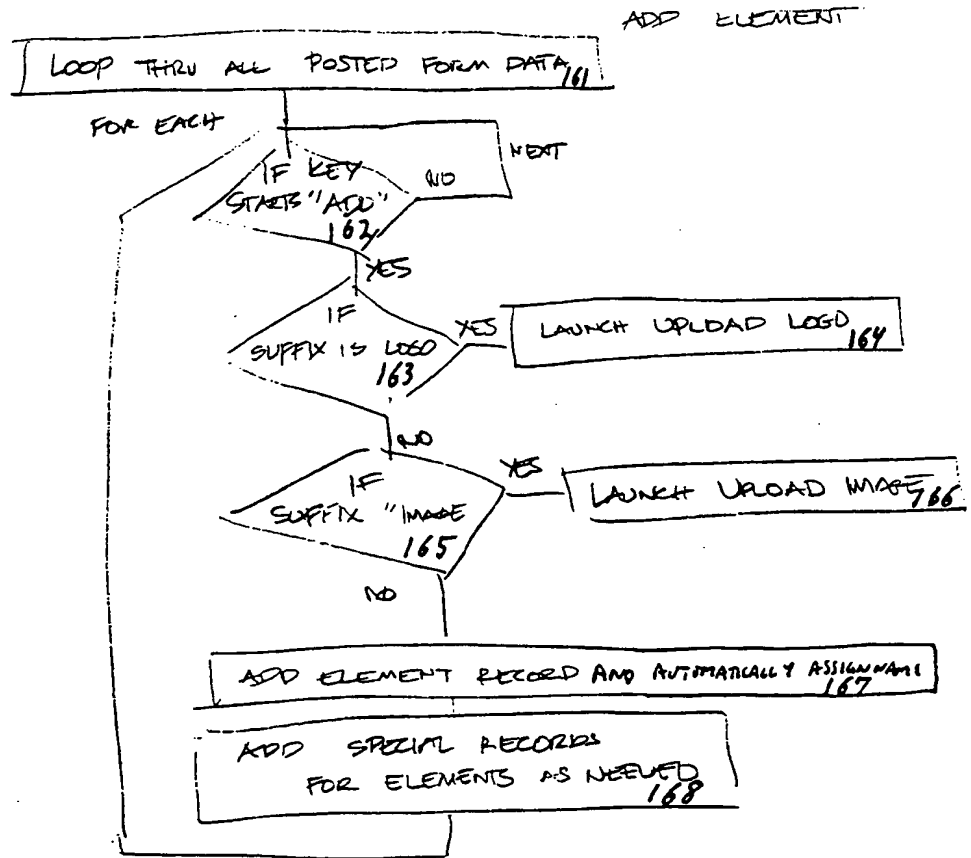 ADD ELEMENT
LOOP THRU ALL POSTED FORM DATA
161
FOR EACH
NEXT
IF KEY
STARTS "ADD"
162
NO
YES
IF
SUFFIX IS LOGO
163
YES
LAUNCH UPLOAD LOGO
164
NO
IF
SUFFIX "IMAGE
165
YES
LAUNCH UPLOAD IMAGE
166
NO
ADD ELEMENT RECORD AND AUTOMATICALLY ASSIGN NAME
167
ADD SPECIAL RECORDS
FOR ELEMENTS AS NEEDED
168